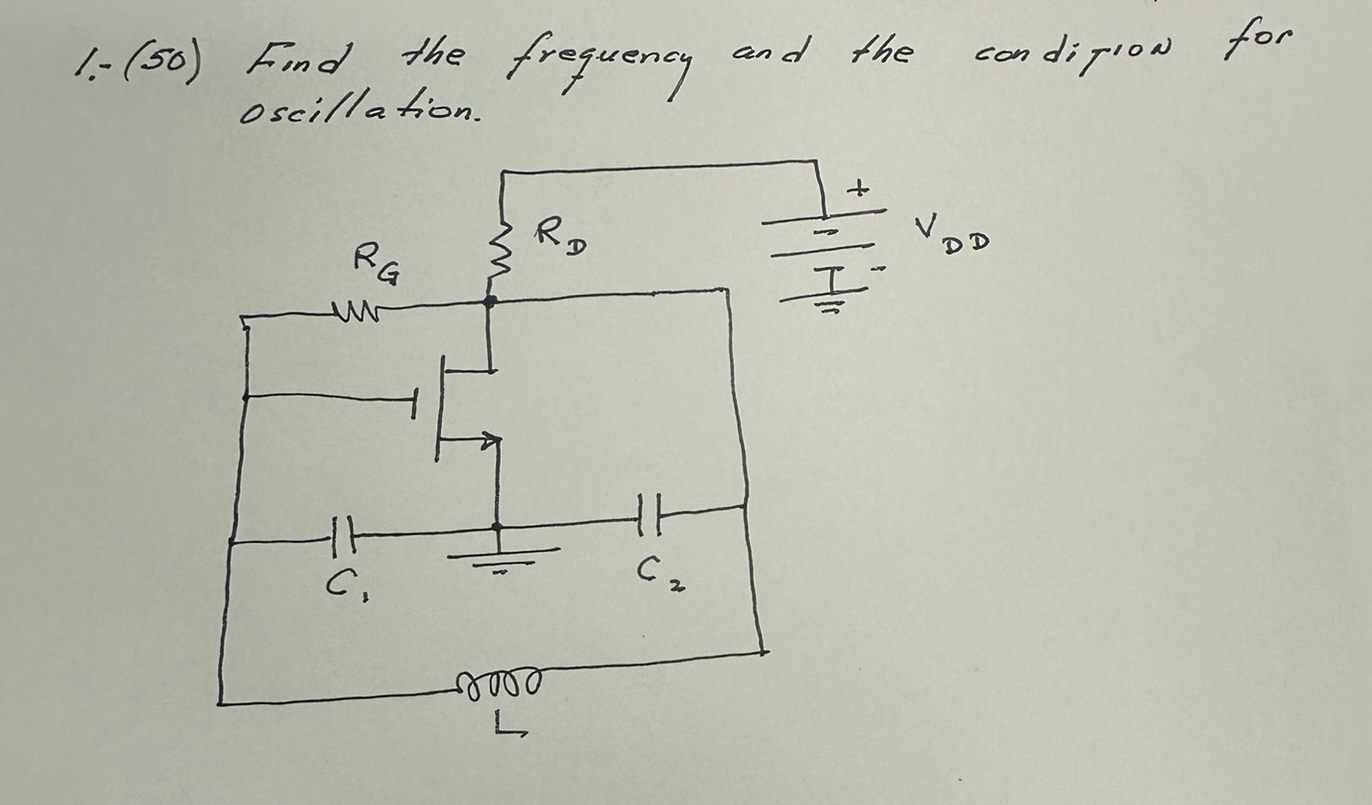 1.- (50) Find the frequency and the condition for
oscillation.
+
R_D
V_DD
R_G
-
C_1
C_2
L